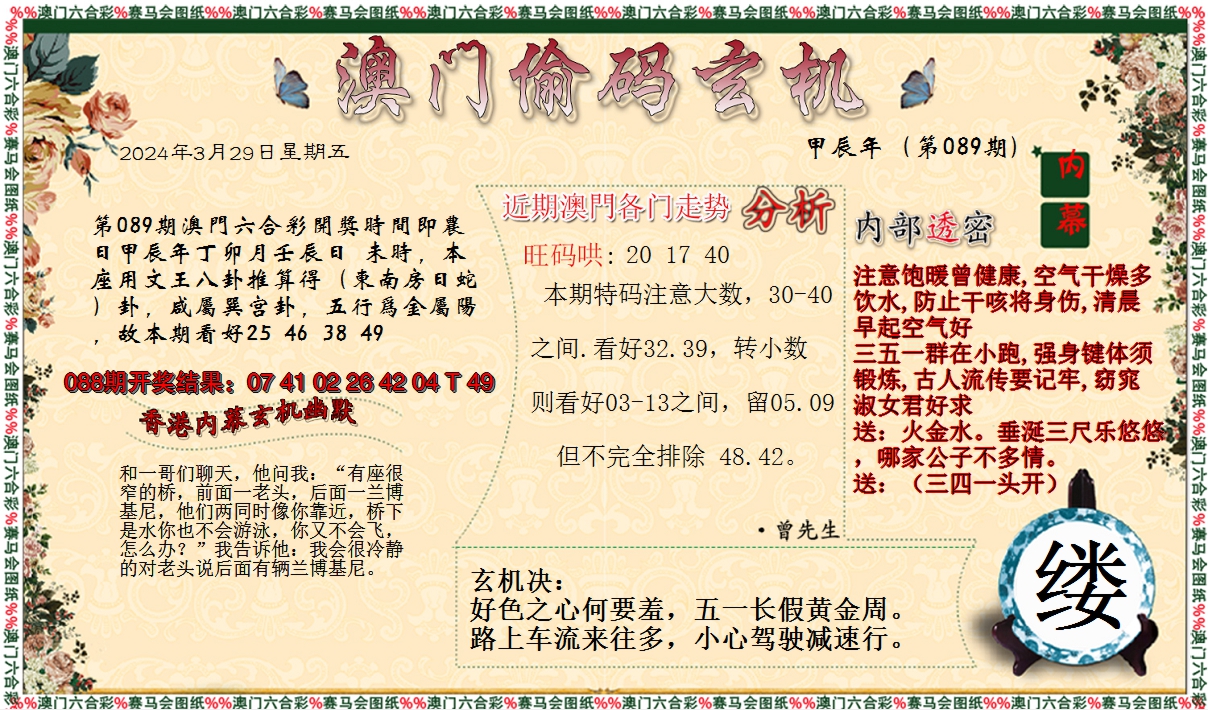 %%澳门六合彩%赛马会图纸%%澳门六合彩%赛马会图纸%%澳门六合彩%赛马会图纸%%澳门六合彩%赛马会图纸%%澳门六合彩%赛马会图纸%%澳门六合彩%赛马会图纸%%
澳门偷码玄机
2024年3月29日星期五
甲辰年（第089期）
内
幕
第089期澳門六合彩開獎時間即農
日甲辰年丁卯月壬辰日 未時，本
座用文王八卦推算得（東南房日蛇
）卦，咸屬巽宫卦，五行爲金屬陽
，故本期看好25 46 38 49
088期开奖结果：07 41 02 26 42 04 T 49
香港内幕玄机幽默
和一哥们聊天，他问我：“有座很
窄的桥，前面一老头，后面一兰博
基尼，他们两同时像你靠近，桥下
是水你也不会游泳，你又不会飞，
怎么办？”我告诉他：我会很冷静
的对老头说后面有辆兰博基尼。
近期澳門各门走势 分析
旺码哄: 20 17 40
本期特码注意大数，30-40
之间.看好32.39，转小数
则看好03-13之间，留05.09
但不完全排除 48.42。
·曾先生
内部透密
注意饱暖曾健康,空气干燥多
饮水,防止干咳将身伤,清晨
早起空气好
三五一群在小跑,强身键体须
锻炼,古人流传要记牢,窈窕
淑女君好求
送：火金水。垂涎三尺乐悠悠
，哪家公子不多情。
送：（三四一头开）
玄机决：
好色之心何要羞，五一长假黄金周。
路上车流来往多，小心驾驶减速行。
缕
%%澳门六合彩%赛马会图纸%%澳门六合彩%赛马会图纸%%澳门六合彩%赛马会图纸%%澳门六合彩%赛马会图纸%%澳门六合彩%赛马会图纸%%澳门六合彩%赛马会图纸%%